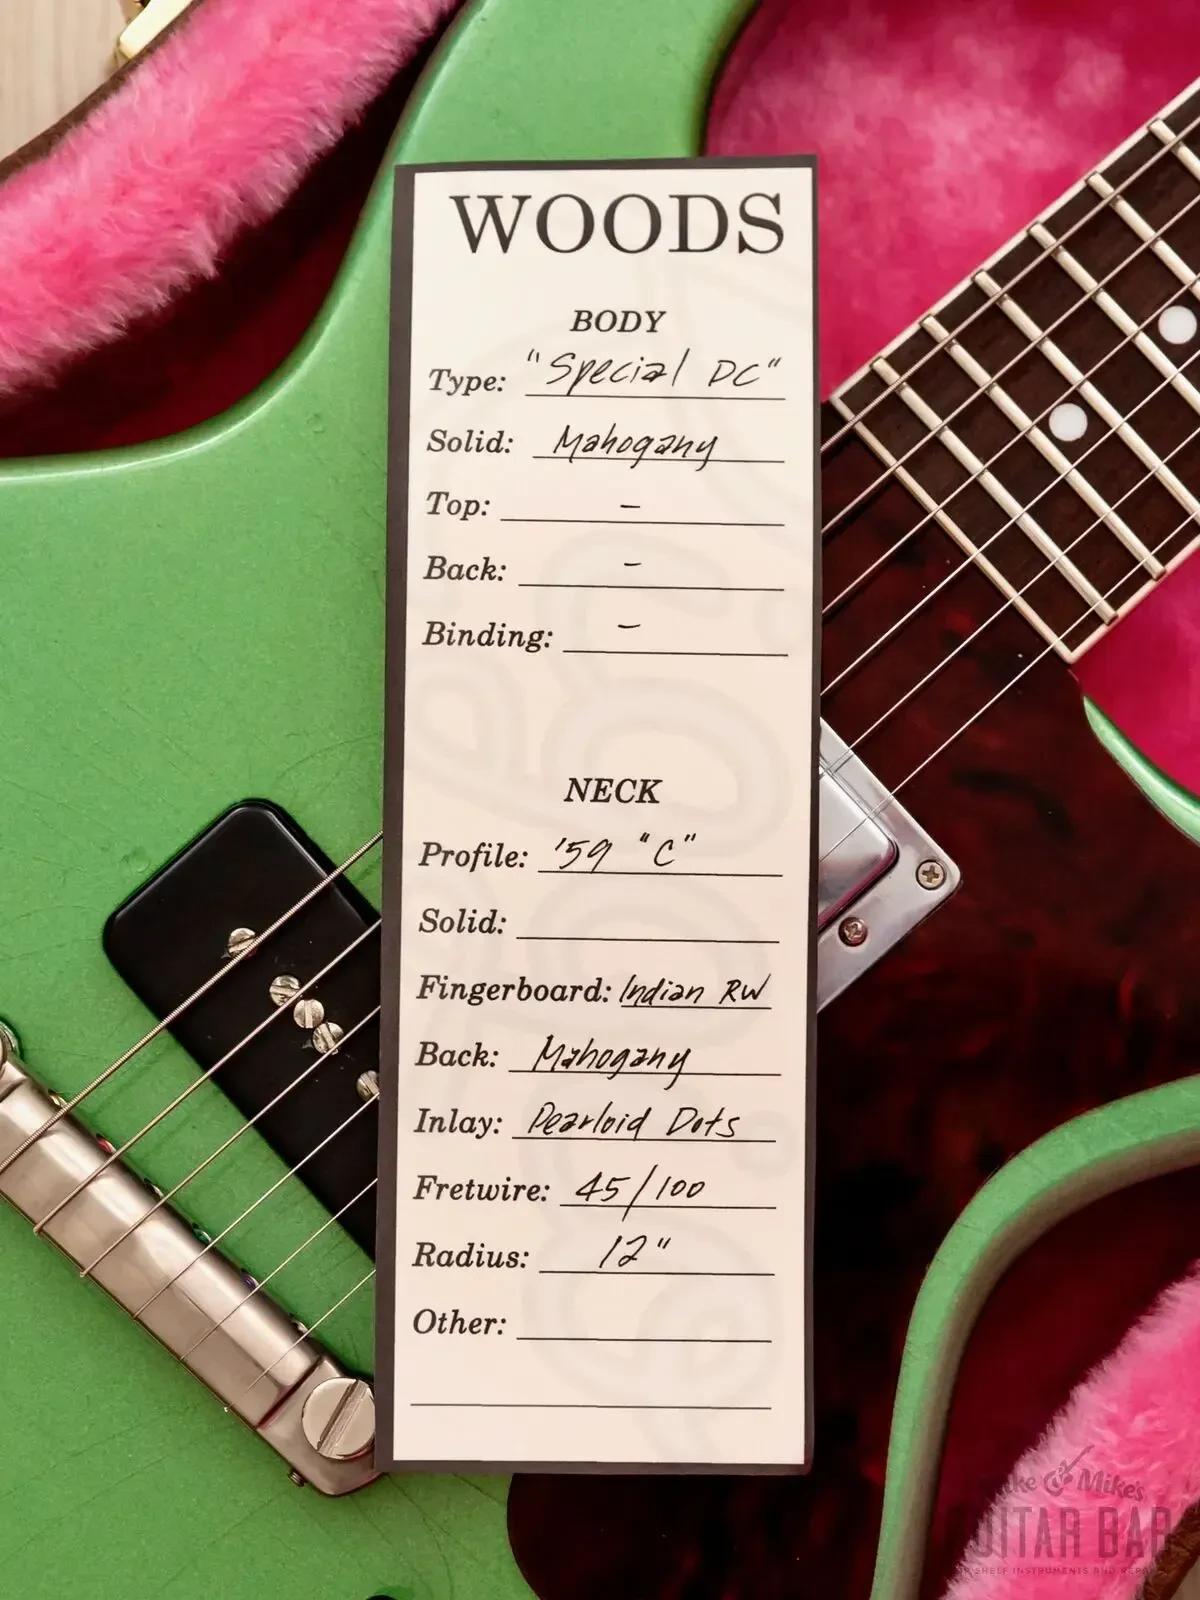 WOODS
BODY
Type: "Special DC"
Solid: Mahogany
Top: –
Back: –
Binding: –
NECK
Profile: '59 "C"
Solid:
Fingerboard: Indian RW
Back: Mahogany
Inlay: Pearloid Dots
Fretwire: 45/100
Radius: 12"
Other:
& Mike's
GUITAR BAR
SHELF INSTRUMENTS AND